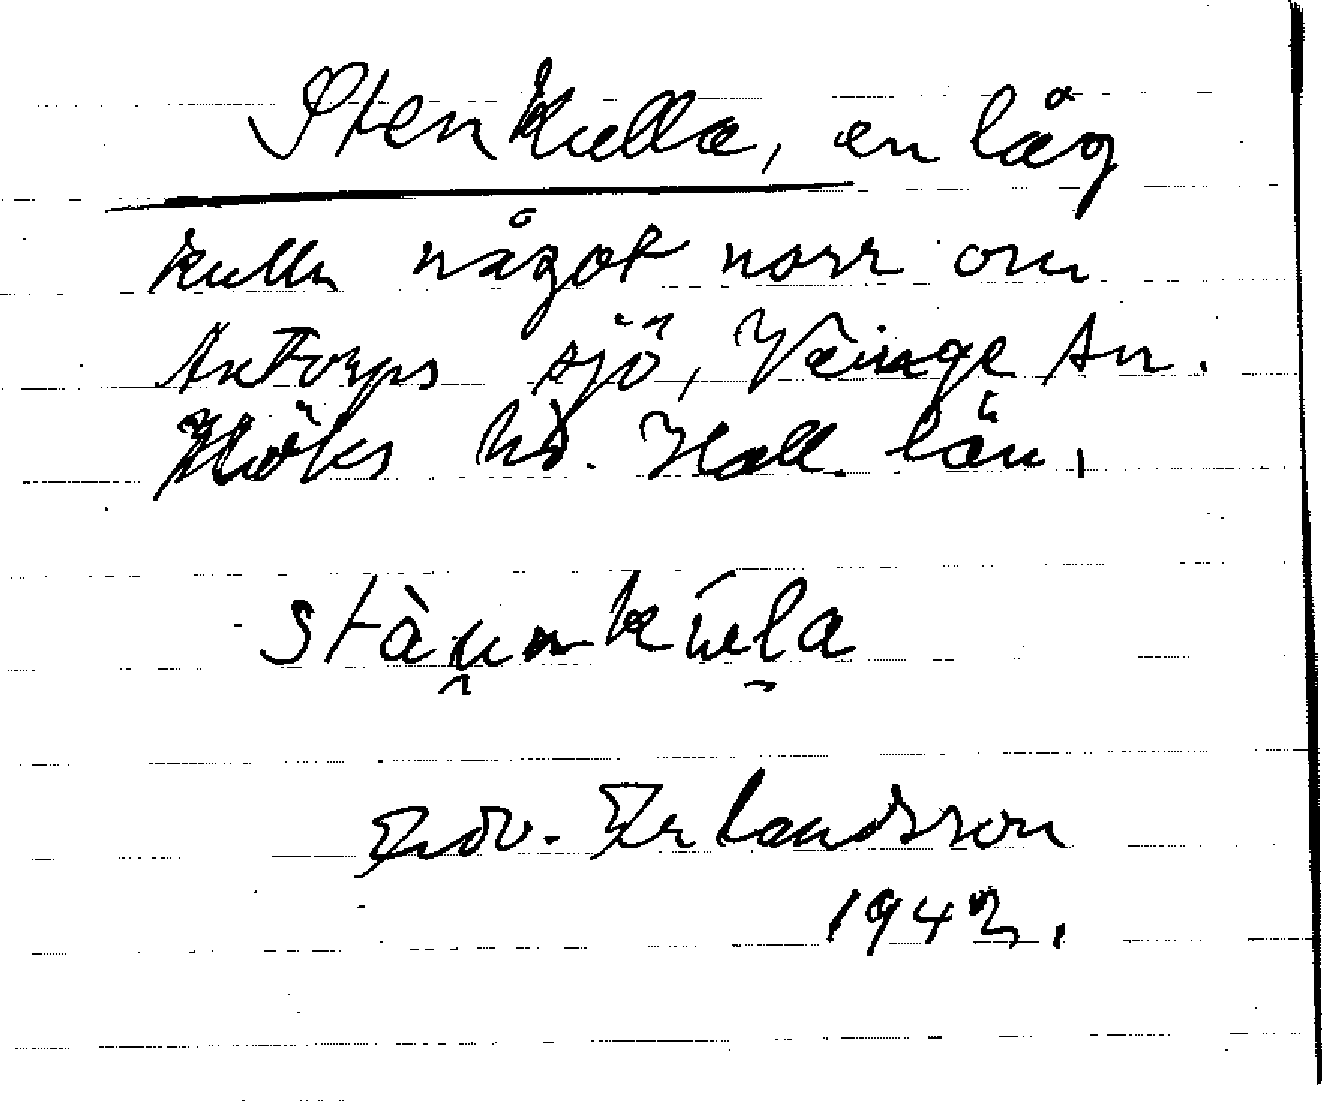 Stenkulla, en låg
kulle något norr om
Axtorps sjö, Veinge sn.
Höks hd. Hall. län.
Edv. Erlandsson
1942.